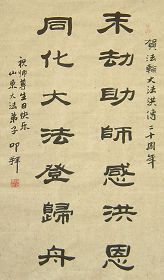 賀法輪大法洪傳二十周年
末劫助師感洪恩
同化大法登歸舟
祝师尊生日快乐
山東大法弟子 叩拜